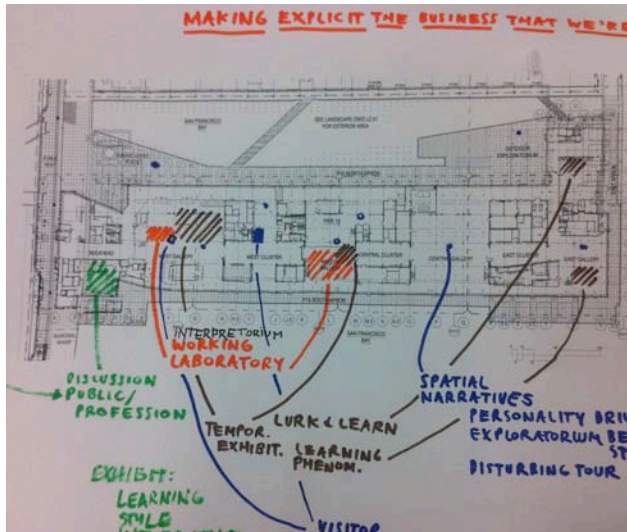 MAKING EXPLICIT THE BUSINESS THAT WE'RE
SAN FRANCISCO
BAY
SEE LANDSCAPE DWGS
FOR EXTERIOR AREA
OUTDOOR
EXPLORATORIUM
BULKHEAD
WEST GALLERY
WEST CLUSTER
PIER 15
CENTRAL CLUSTER
CENTRAL GALLERY
EAST CLUSTER
EAST GALLERY
SAN FRANCISCO
BAY
INTERPRETORIUM
WORKING
LABORATORY
DISCUSSION
PUBLIC/
PROFESSION
TEMPOR.
EXHIBIT.
LURK & LEARN
LEARNING
PHENOM.
SPATIAL
NARRATIVES
PERSONALITY DRIV
EXPLORATORIUM BE
ST
DISTURBING TOUR
EXHIBIT:
LEARNING
STYLE
VISITOR